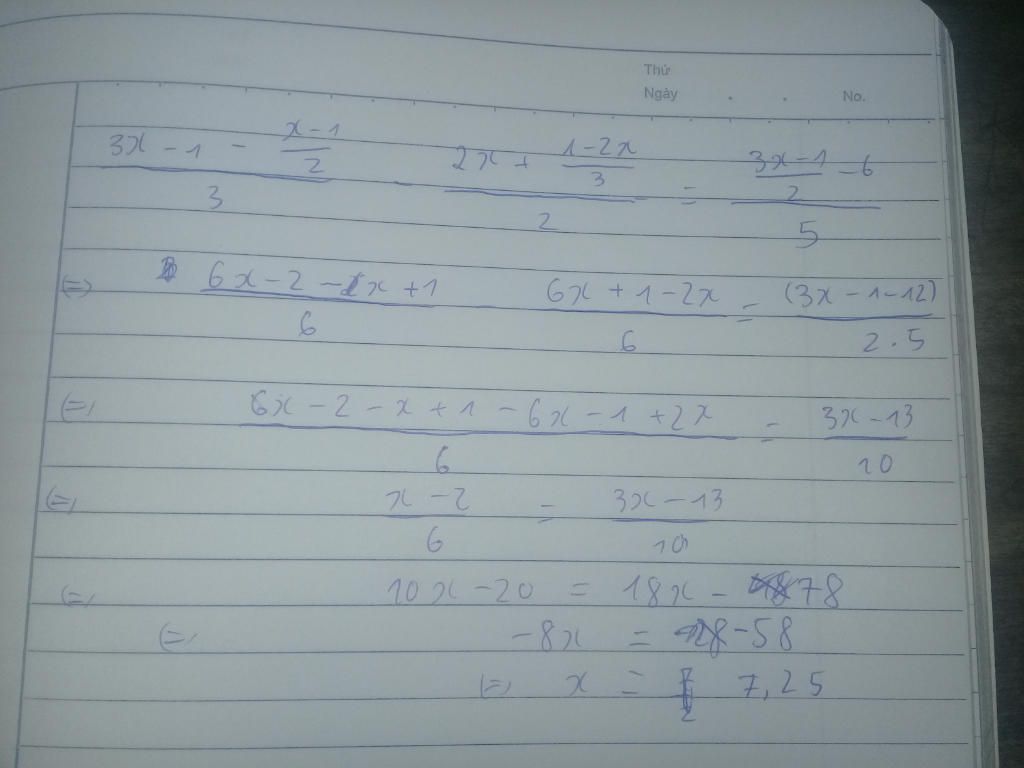 Thứ
Ngày . . No.
(3x - 1 - (x-1)/2)/3 - (2x + (1-2x)/3)/2 = ((3x-1)/2 - 6)/5
(=) (6x - 2 - x + 1)/6 - (6x + 1 - 2x)/6 = (3x - 1 - 12)/(2.5)
(=) (6x - 2 - x + 1 - 6x - 1 + 2x)/6 = (3x - 13)/10
(=) (x - 2)/6 = (3x - 13)/10
(=) 10x - 20 = 18x - 78
(=) -8x = -58
(=) x = 7,25